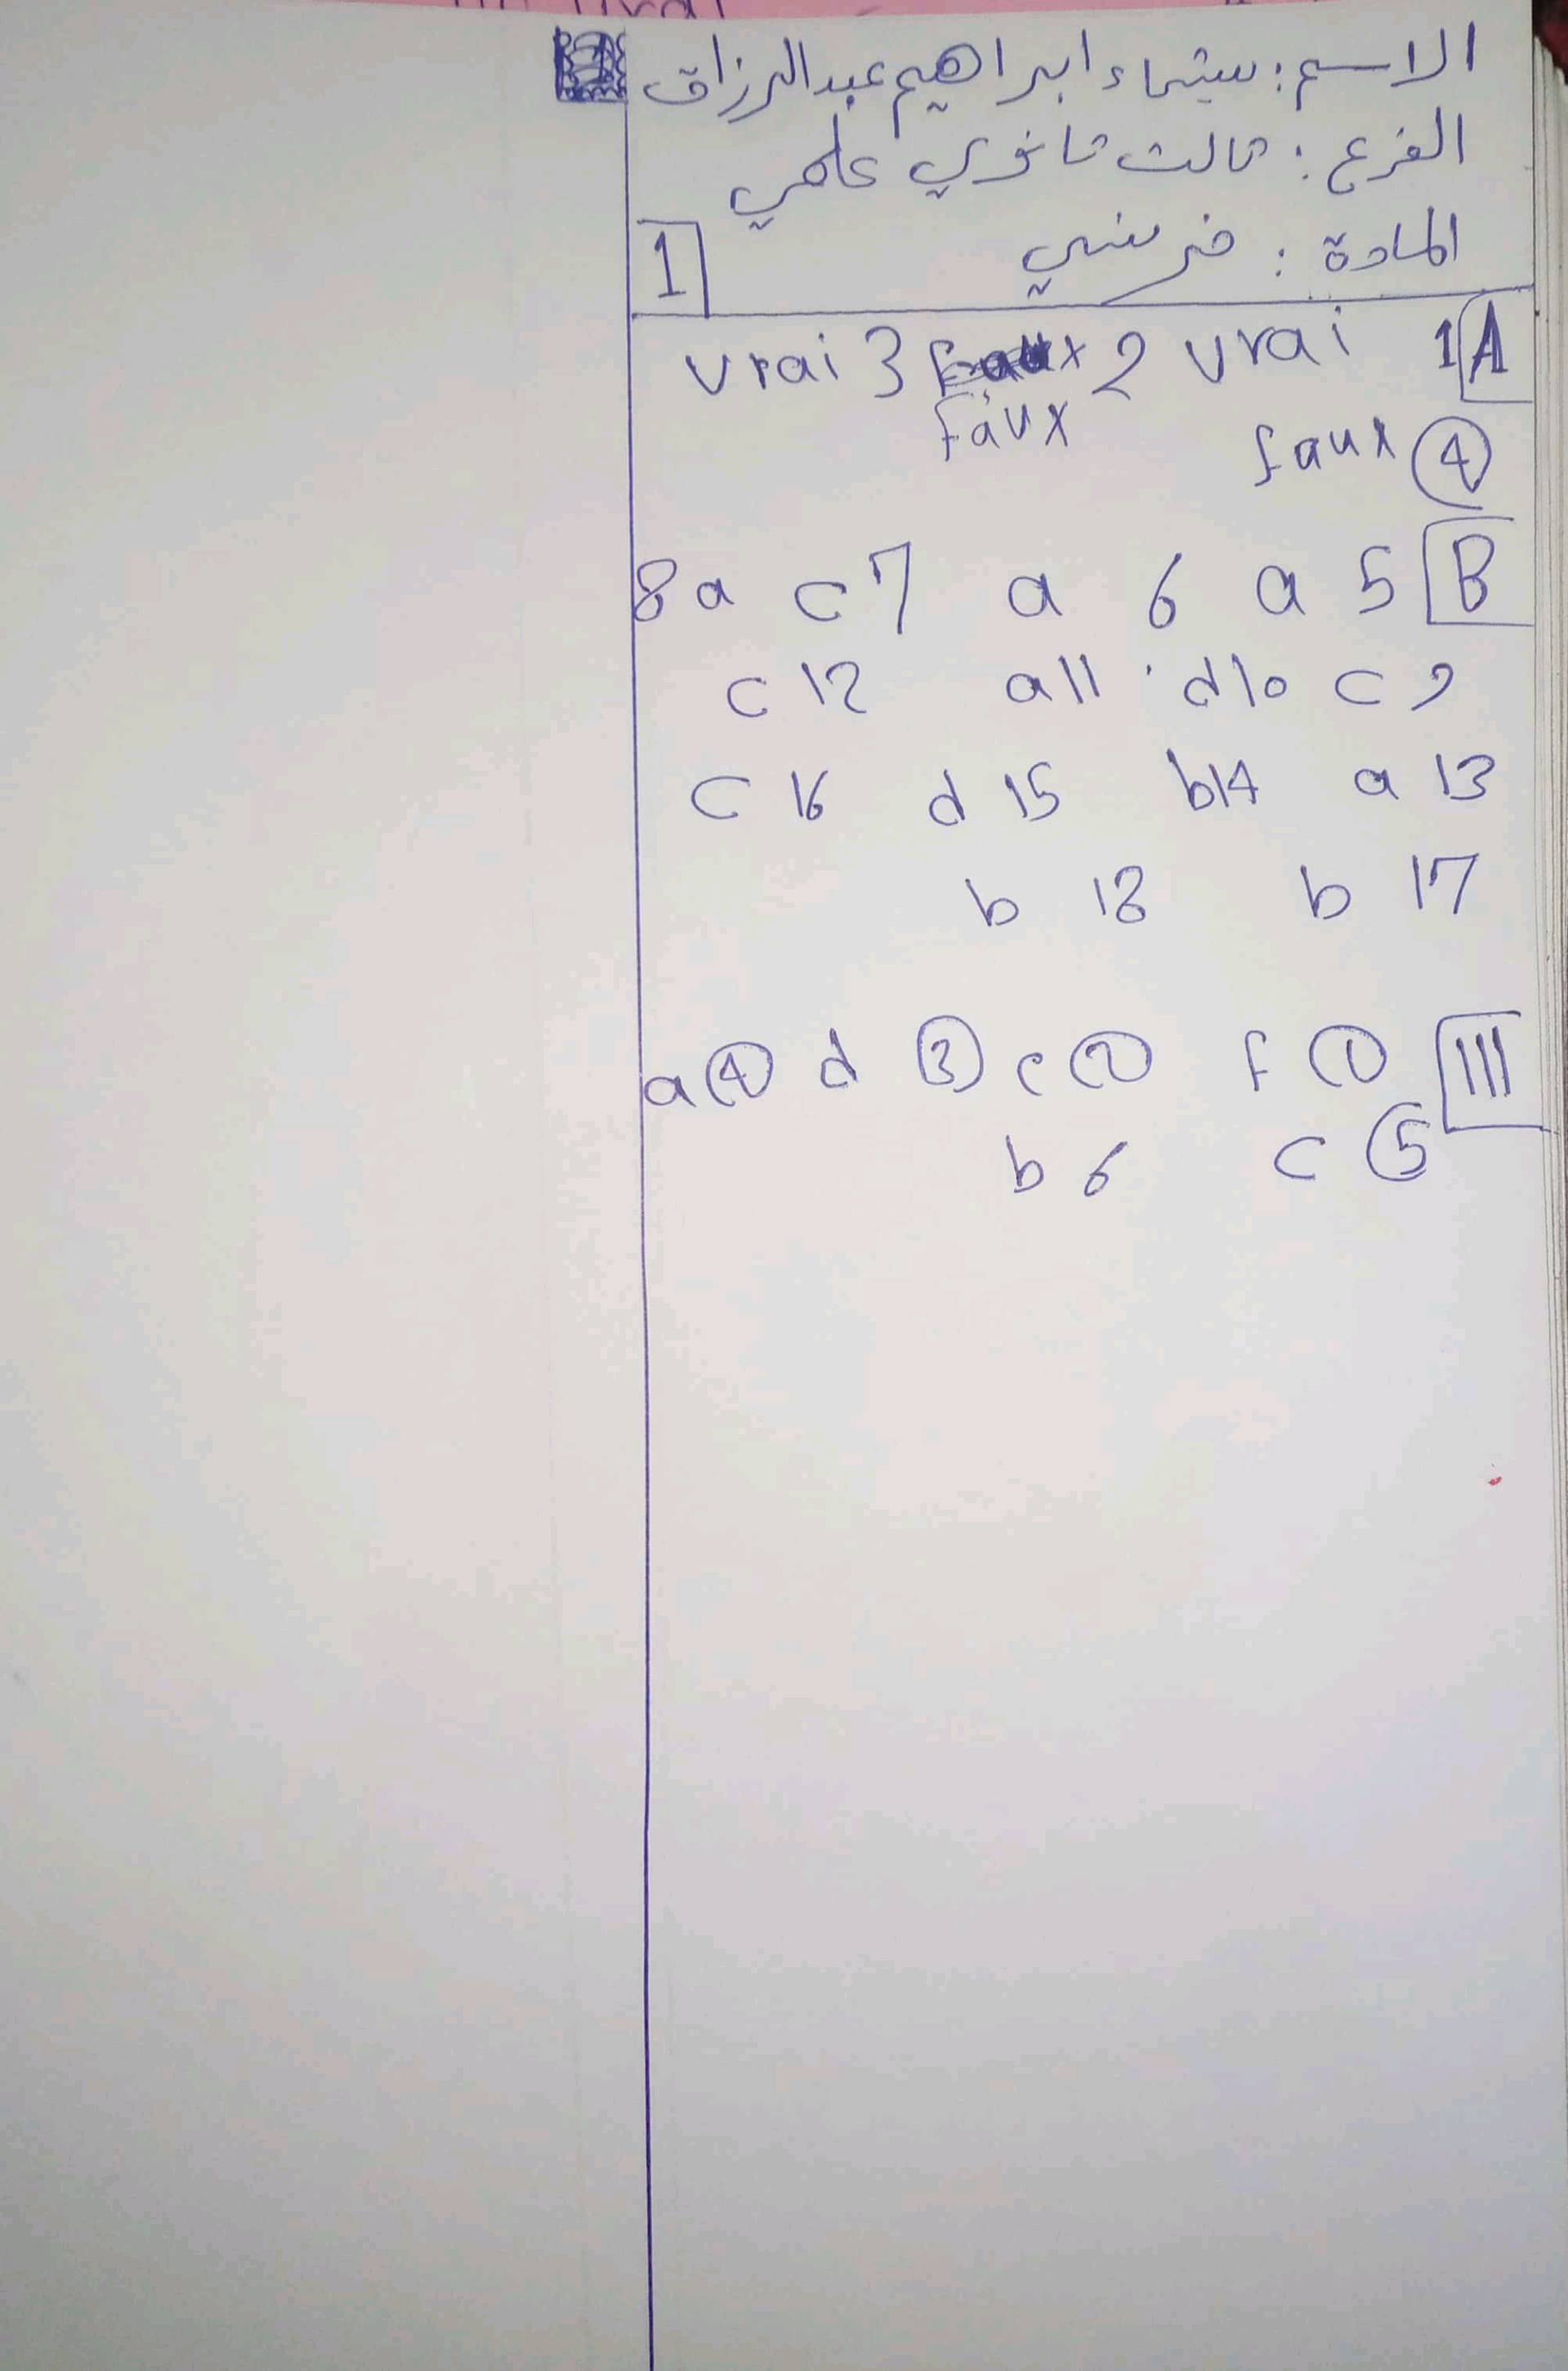 الاسم: شيماء ابراهيم عبدالرزاق
الفرع: ثالث ثانوي علمي
المادة: فرنسي
1
A 1 vrai 2 Faux 3 vrai
④ faux
B 5 a 6 a 7 c 8 a
9 c 10 d 11 a 12 c
13 a 14 b 15 d 16 c
17 b 18 b
III ① f ② e ③ d ④ a
⑤ c 6 b